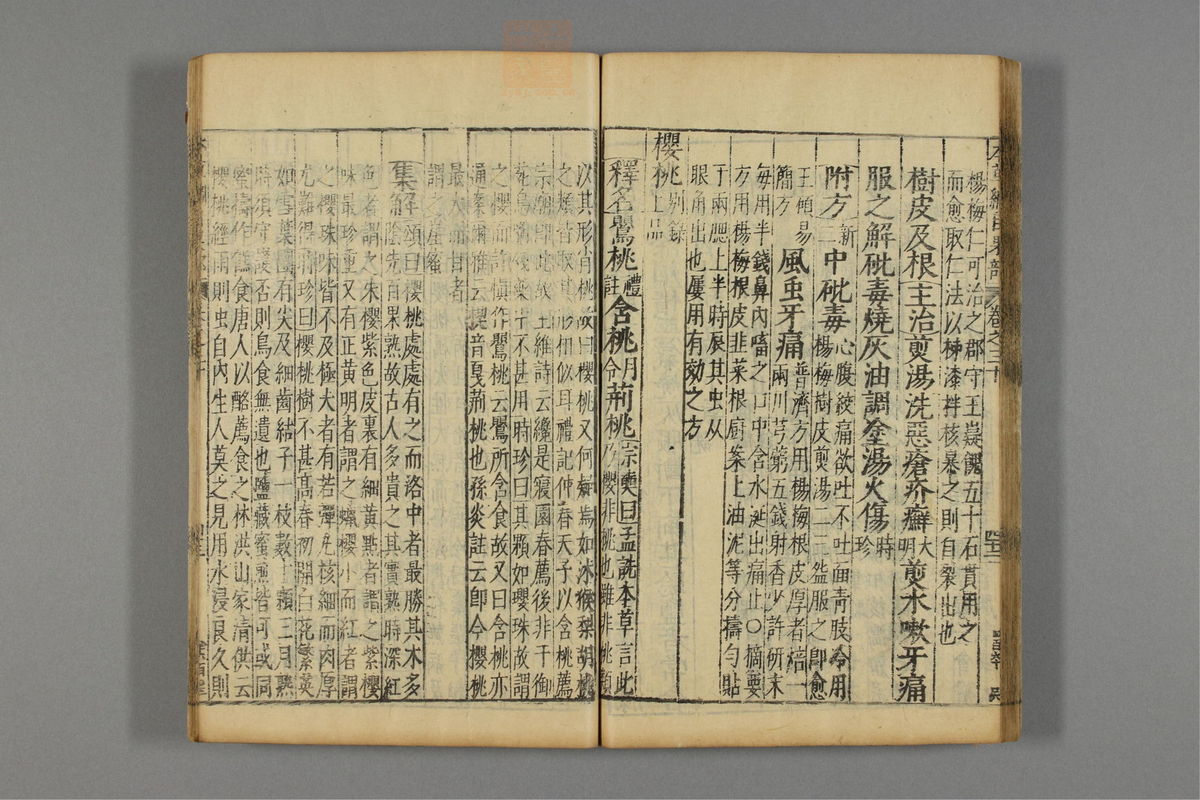 楊梅仁可治之郡守王嶷餽五十石貫用之
而愈取仁法以柹漆拌核暴之則自裂出也
樹皮及根主治煎湯洗惡瘡疥癬大明煎水嗽牙痛
服之解砒毒燒灰油調塗湯火傷時珍
附方新二中砒毒心腹絞痛欲吐不吐面青肢冷用楊梅樹皮煎湯二三盌服之卽愈
王碩易簡方風虫牙痛普濟方用楊梅根皮厚者焙一兩川芎藭五錢麝香少許研末
每用半錢鼻內㗜之口中含水涎出痛止○摘要
方用楊梅根皮韭菜根廚案上油泥等分擣勻貼
于兩腮上半時辰其虫从
眼角出也屢用有效之方
櫻桃別錄上品
釋名鸎桃禮註含桃月令荊桃宗奭曰孟詵本草言此乃櫻非桃也雖非桃類
以其形肖桃故曰櫻桃又何疑焉如沐猴棃胡桃
之類皆取其形相似耳禮記仲春天子以含桃薦
宗廟卽此故王維詩云纔是寢園春薦後非干御
苑鳥銜殘藥中不甚用時珍曰其顆如瓔珠故謂
之櫻而許愼作鸎桃云鸎所含食故又曰含桃亦
通案爾雅云楔音戛荊桃也孫炎註云卽今櫻桃
最大而甘者
謂之崖蜜
集解頌曰櫻桃處處有之而洛中者最勝其木多陰先百果熟故古人多貴之其實熟時深紅
色者謂之朱櫻紫色皮裏有細黃㸃者謂之紫櫻
味最珍重又有正黃明者謂之蠟櫻小而紅者謂
之櫻珠味皆不及極大者有若彈丸核細而肉厚
尤難得時珍曰櫻桃樹不甚高春初開白花繁英
如雪葉團有尖及細齒結子一枝數十顆三月熟
時須守護否則鳥食無遺也鹽藏蜜煎皆可或同
蜜擣作餻食唐人以酪薦食之林洪山家清供云
櫻桃經雨則虫自內生人莫之見用水浸良久則